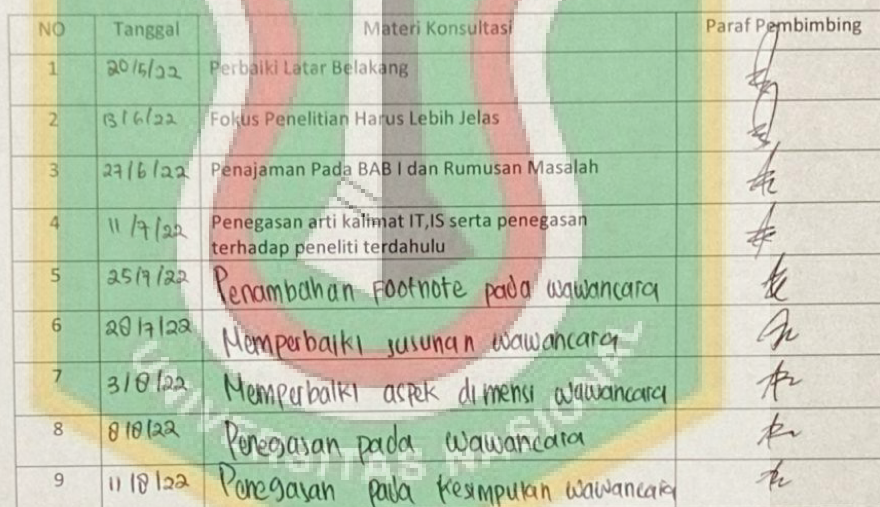 NO Tanggal Materi Konsultasi Paraf Pembimbing
1 20/5/22 Perbaiki Latar Belakang
2 13/6/22 Fokus Penelitian Harus Lebih Jelas
3 27/6/22 Penajaman Pada BAB I dan Rumusan Masalah
4 11/7/22 Penegasan arti kalimat IT,IS serta penegasan
terhadap peneliti terdahulu
5 25/7/22 Penambahan Footnote pada wawancara
6 28/7/22 Memperbaiki susunan wawancara
7 3/8/22 Memperbaiki aspek dimensi wawancara
8 8/8/22 Penegasan pada wawancara
9 11/8/22 Penegasan pada kesimpulan wawancara
UNIVERSITAS NASIONAL